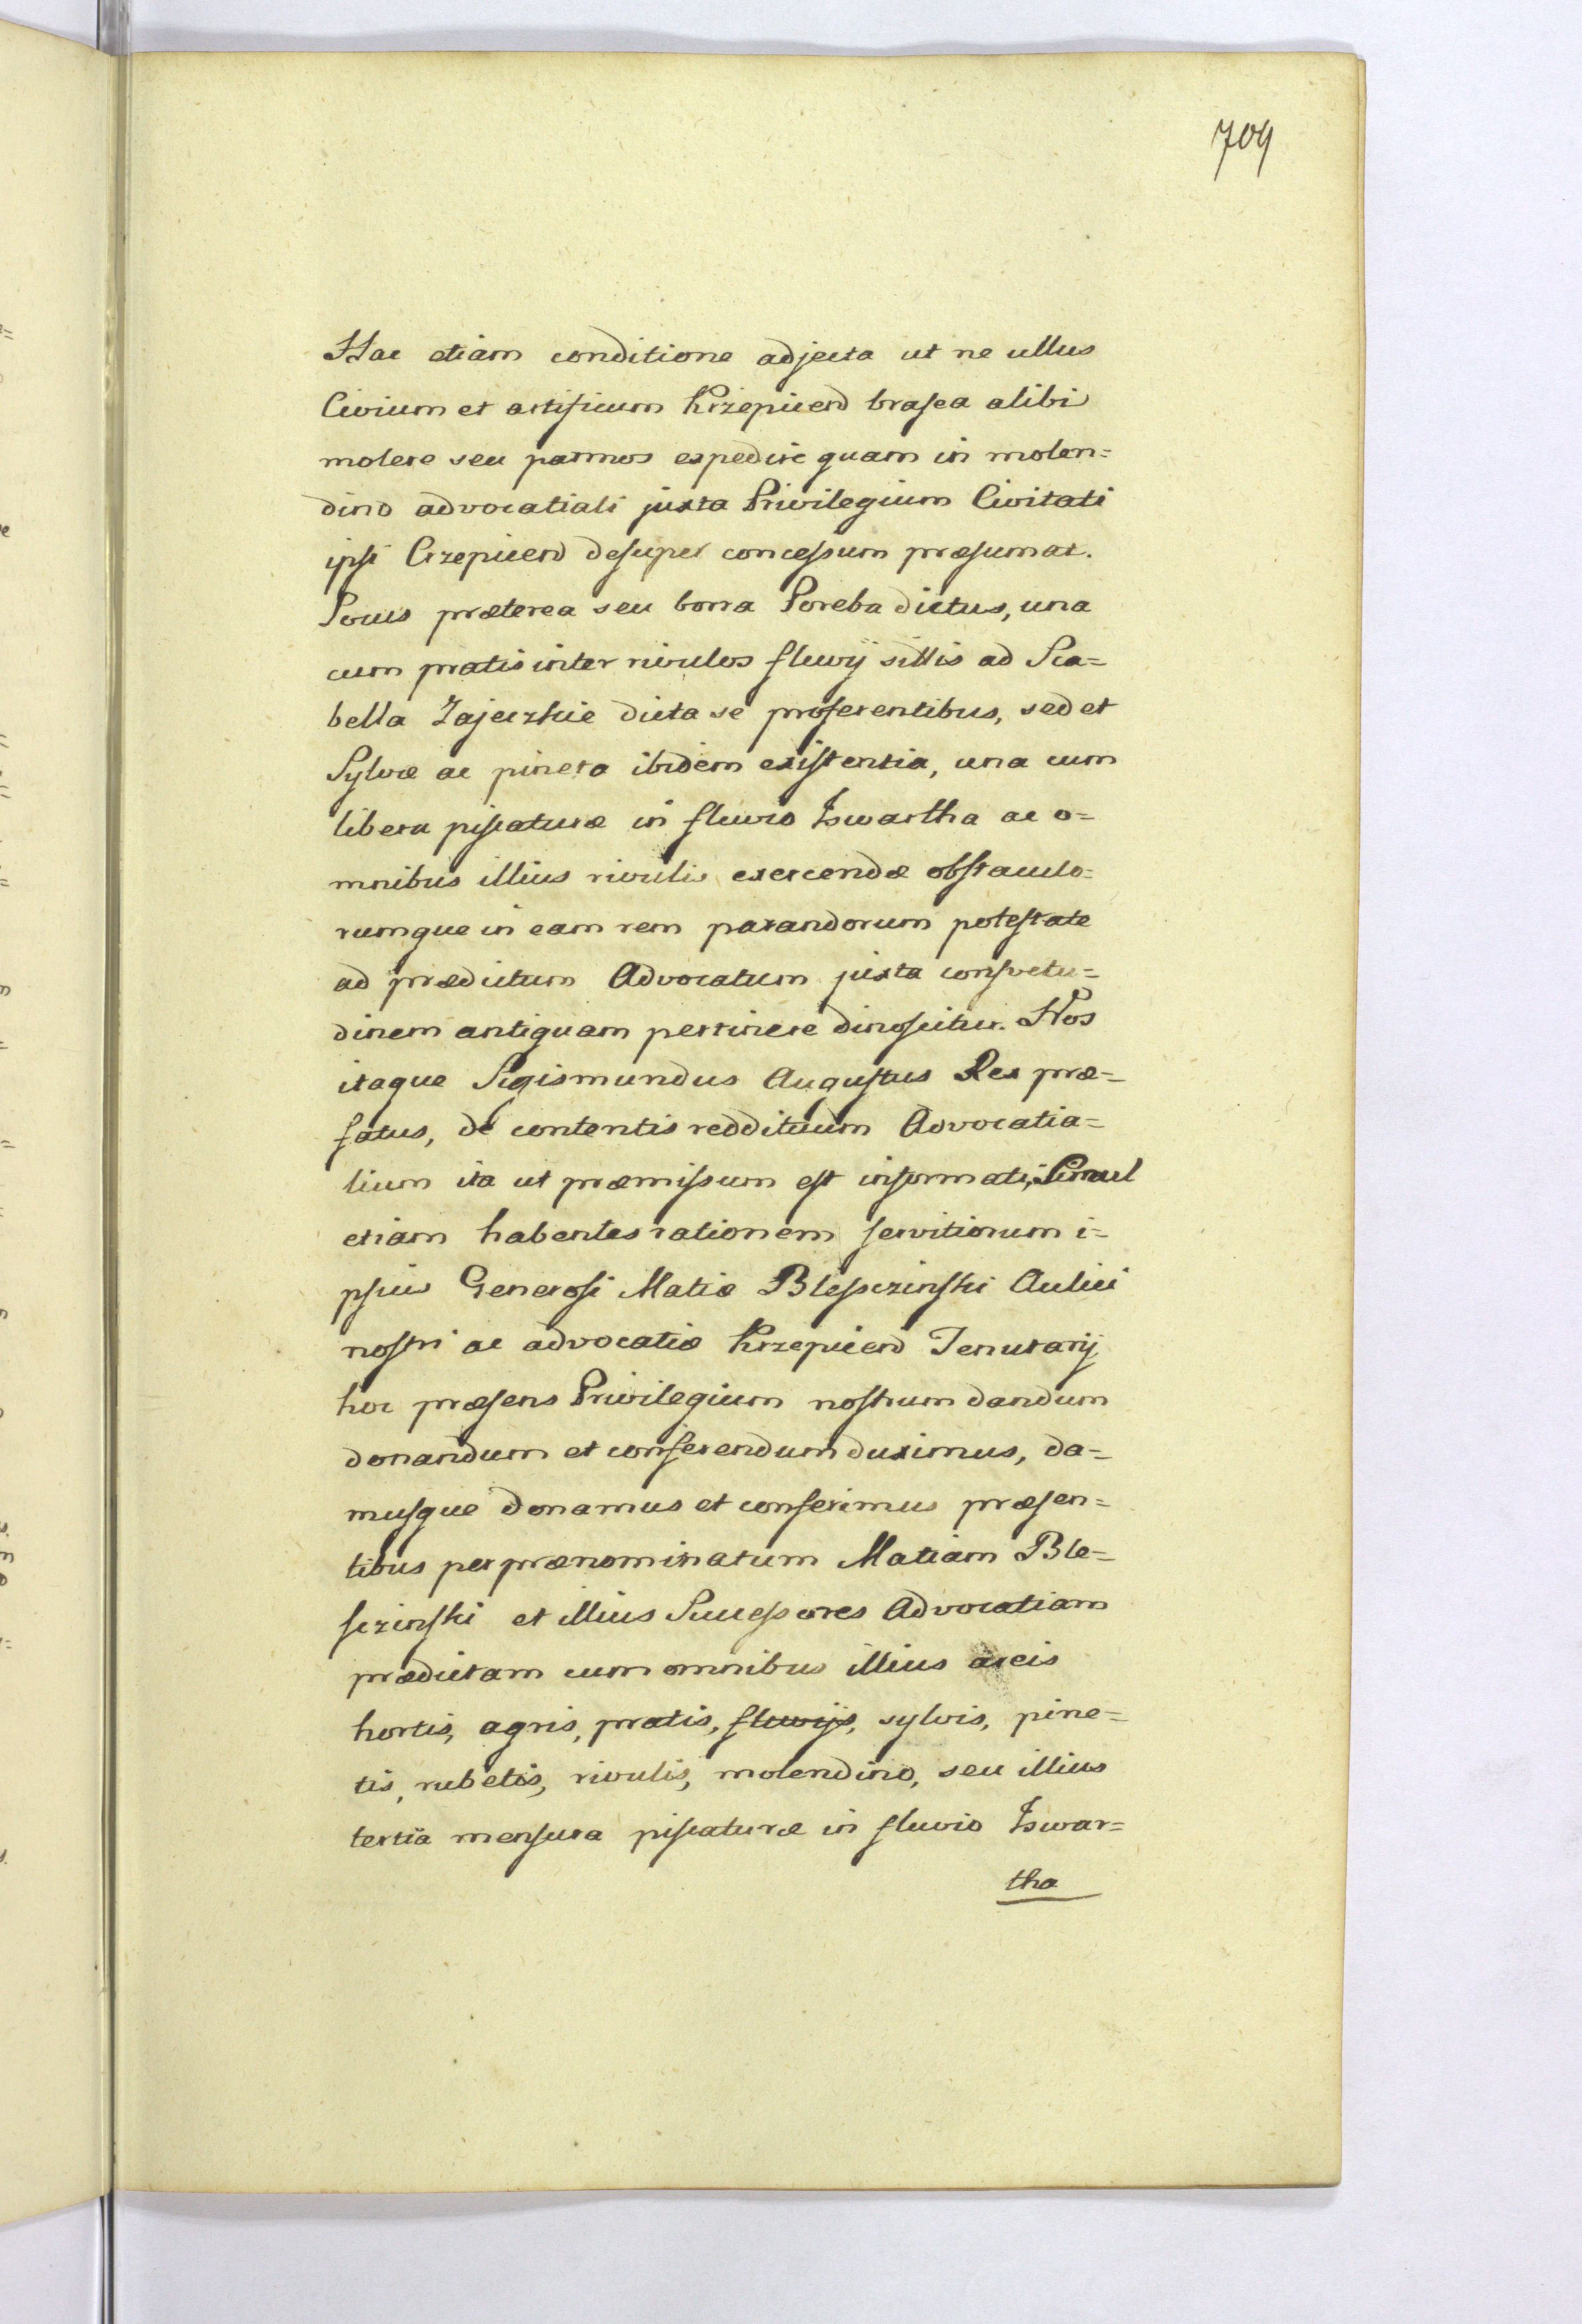 709
Hac etiam conditione adjecta ut ne ullus
Civium et artificum Krzepicen brasea alibi
molere seu pannos expedire quam in molen=
dino advocatiali juxta Privilegium Civitati
ipsi Crzepicen desuper concessum præsumat.
Locus præterea seu borra Poreba dictus, una
cum pratis inter rivulos fluvij sittis ad Sca=
bella Zajeczkie dicta se proferentibus, sed et
Sylvæ ac pineta ibidem existentia, una cum
libera piscaturæ in fluvio Iswartha ac o=
mnibus illius rivulis exercendæ obstaculo=
rumque in eam rem parandorum potestate
ad prædictum Advocatum juxta consvetu=
dinem antiquam pertinere dinoscitur. Nos
itaque Sigismundus Augustus Rex præ=
fatus, de contentis reddituum Advocatia=
lium ita ut præmissum est informati, Simul
etiam habentes rationem servitiorum i=
psius Generosi Matiæ Blessczinski Aulici
nostri ac advocatiæ Krzepicen Tenutarij
hoc præsens Privilegium nostrum dandum
donandum et conferendum duximus, da=
musque donamus et conferimus præsen=
tibus per prænominatum Matiam Ble=
sczinski et illius Successores Advocatiam
prædictam cum omnibus illius areis
hortis, agris, pratis, fluvijs, sylvis, pine=
tis, rubetis, rivulis, molendino, seu illius
tertia mensura piscaturæ in fluvio Iswar=
tha